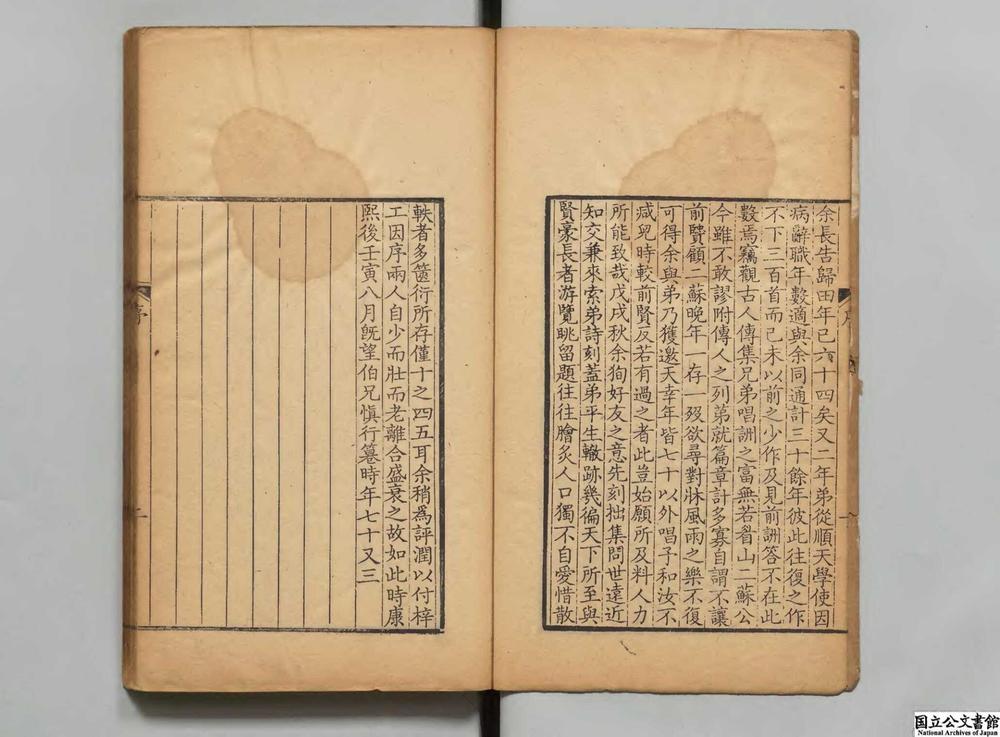 余長告歸田年已六十四矣又二年弟從順天學使因
病辭職年數適與余同通計三十餘年彼此往復之作
不下三百首而已未以前之少作及見前詶答不在此
數焉竊觀古人傳集兄弟唱詶之富無若眉山二蘇公
今雖不敢謬附傳人之列第就篇章計多寡自謂不讓
前賢顧二蘇晚年一存一歿欲尋對牀風雨之樂不復
可得余與弟乃獲邀天幸年皆七十以外唱予和汝不
减兒時較前賢反若有過之者此豈始願所及料人力
所能致哉戊戌秋余狥好友之意先刻拙集問世遠近
知交兼來索弟詩刻蓋弟平生轍跡幾徧天下所至與
賢豪長者游覽眺留題往往膾炙人口獨不自愛惜散
序
一
軼者多篋衍所存僅十之四五耳余稍爲評潤以付梓
工因序兩人自少而壯而老離合盛衰之故如此時康
熙後壬寅八月旣望伯兄慎行篹時年七十又三
序
二
国立公文書館
National Archives of Japan